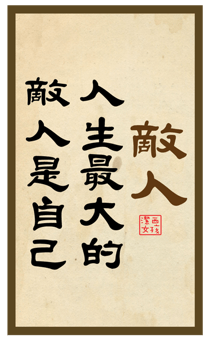 敵人
人生最大的
敵人是自己